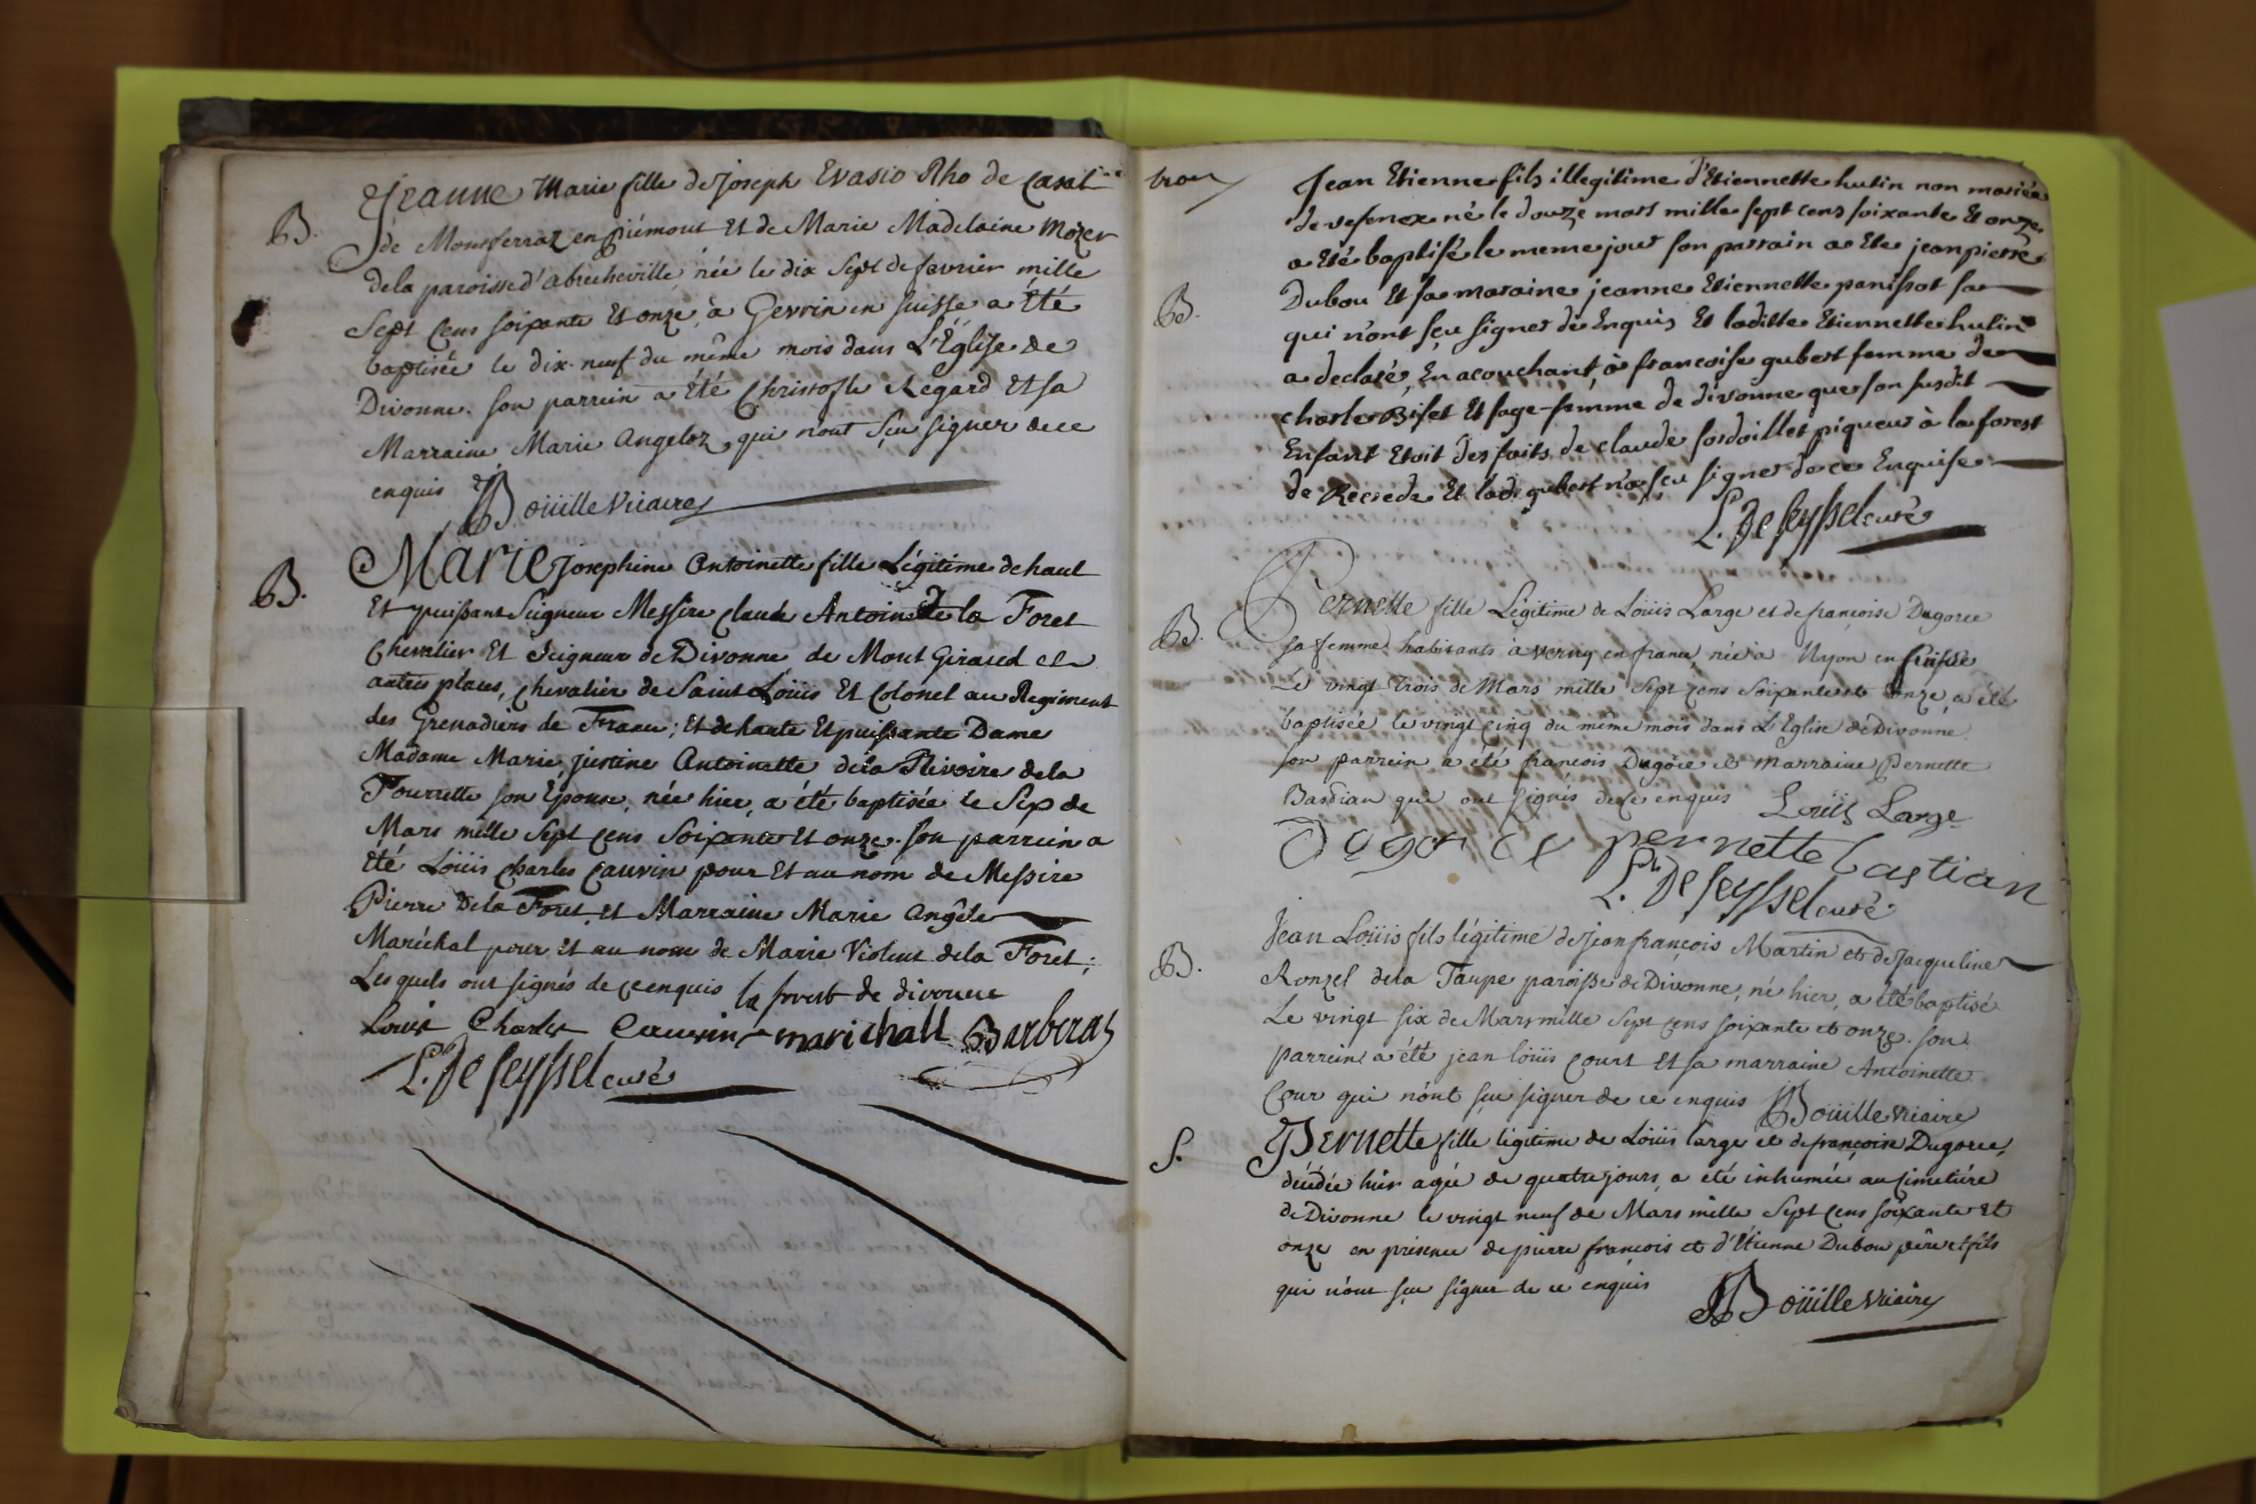 Jeanne Marie fille de Joseph Evasio Rho de Casal
B.
de Montferraz en piémont Et de Marie Madelaine Mozer
dela paroisse d'abrecheville, née le dix Sept de fevrier mille
Sept Cens soixante Et onze à Gevrin en suisse a Eté
baptisée le dix-neuf du même mois dans L'Église de
Divonne. son parrein a Été Christofle Regard Et sa
Marraine Marie Angeloz qui n'ont sçu signer de ce
enquis
Boüille Vicaire
B.
Marie Josephine Antoinette fille Légitime de haut
Et puissant Seigneur Messire Claude Antoine De la Foret
Chevalier Et Seigneur de Divonne de Mont Girared et
autres places, chevalier de Saint Loüis Et Colonel au Regiment
des Grenadiers de France; Et de haute Et puissante Dame
Madame Marie Justine Antoinette dela Rivoire dela
Tourrette son Épouse, née hier, a été baptisée le Sep de
Mars mille Sept Cens Soixante Et onze. son parrein a
été Loüis Charles Cauvin pour Et au nom de Messire
Pierre Dela Foret et Marraine Marie Angèle
Maréchal pour et au nom de Marie Violent dela Foret;
Lesquels ont signés de ce enquis la forest de divonne
Louis Charles Cauvin marichall Barberas
L. De Seyssel curé
Jean Etienne fils illegitime d'Etiennette hutin non mariée
de vesenex né le douze mars mille sept cens soixante Et onze
a été baptisé le meme jour son parrain a ete jean pierre
Dubou Et sa maraine jeanne Etiennette panissot sa
B.
qui n'ont sçu signer de Enquis Et laditte Etiennette hutin
a declaré En acouchant à francoise gubert femme de
charle Biset Et sage-femme de divonne que son susdit
Enfant Etoit des faits de claude sordoillet piqueur à la forest
de Recrede Et lad. gubert n'a sçu signer de ce Enquise
L. De Seyssel curé
Pernette fille Légitime de Loüis Large et de françoise Dugorce
B.
sa femme habitants à verny en france, née à Nyon en Suisse
Le vingt Trois de Mars mille Sept Cens Soixante et onze, a été
baptisée le vingt Cinq du même mois dans L'Eglise de Divonne
son parrein a été francois Dugorce et Marraine Pernette
Bastian qui ont signés de ce enquis Loüis Large
Dugorce pernette bastian
L. De Seyssel curé
Jean Loüis fils légitime de Jean françois Martin et de Jacqueline
B.
Ronzel dela Taupe paroisse de Divonne, né hier, a été baptisé
Le vingt six de Mars mille Sept Cens soixante et onze. son
parrein a été jean loüis Court Et sa marraine Antoinette
Cour qui n'ont sçu signer de ce enquis Boüille Vicaire
S.
Pernette fille légitime de Loüis large et de françoise Dugorce,
décédée hier agée de quatre jours, a été inhumée au Cimetière
de Divonne le vingt neuf de Mars mille Sept Cens soixante Et
onze en présence de pierre françois et d'Étienne Dubou père et fils
qui n'ont sçu signer de ce enquis
Boüille Vicaire